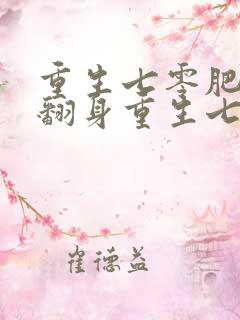 重生七零肥
翻身重生七
崔德益